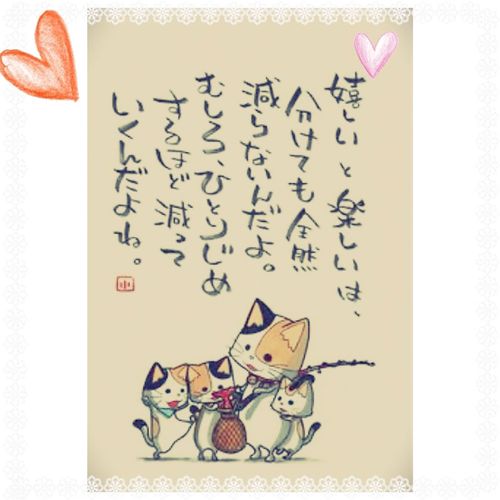 嬉しいと楽しいは、
分けても全然
減らないんだよ。
むしろ、ひとりじめ
するほど減って
いくんだよね。
小